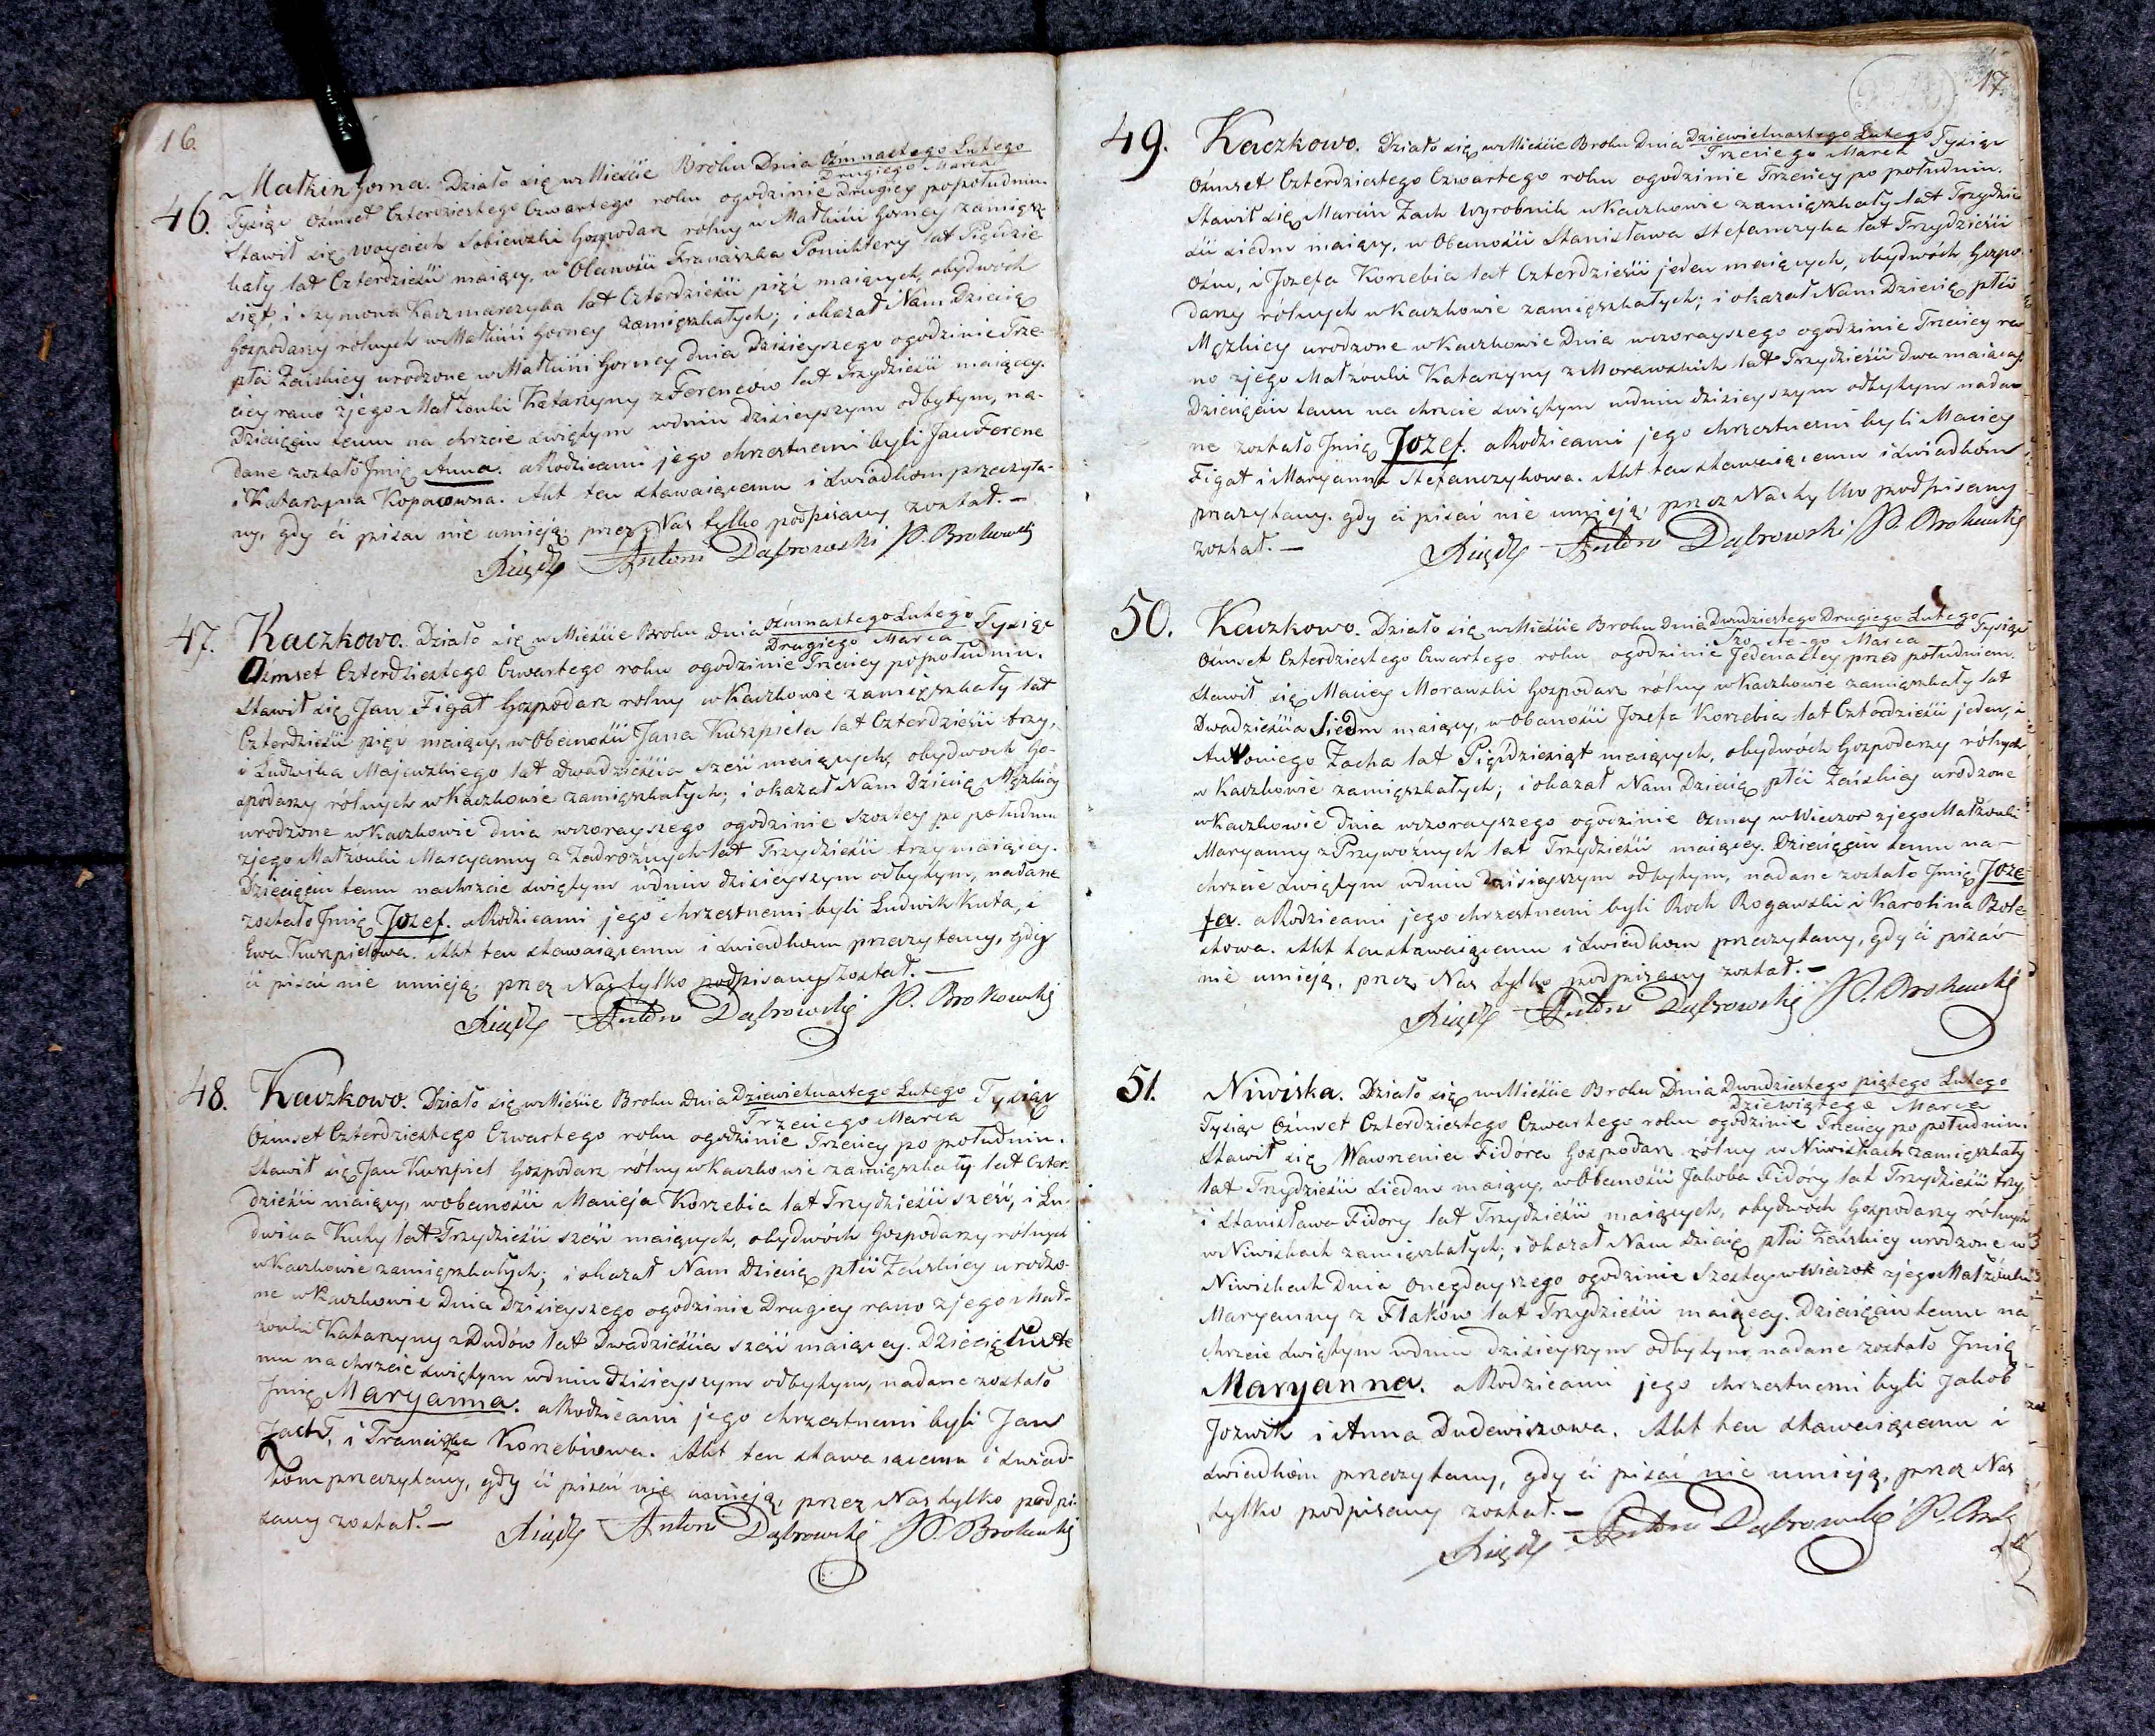 16.
46. Małkin Gorna. Działo się w Mieście Broku Dnia Osmnastego Lutego
Drugiego Marca
Tysiąc Ośmset Czterdziestego Czwartego roku ogodzinie Drugiey popołudniu.
Stawił się Woyciech Sobiewski Gospodarz rólny w Małkini Gorney zamięsz-
kały lat Czterdzieści maiący, w Obecności Franciszka Ponichtery lat Pięćdzie-
siąt, i Szymona Kaczmarczyka lat Czterdzieści pięć maiących, obydwóch
Gospodarzy rólnych w Małkini Gorney zamięszkałych; i okazał Nam Dziecię
płci Żeńskiey urodzone w Małkini Gorney dnia Dzisieyszego ogodzinie Trze-
ciey rano z jego Małżonki Katarzyny z Ferenców lat Trzydzieści maiącey.
Dziecięciu temu na chrzcie świętym wdniu dzisieyszym odbytym, na-
dane zostało Jmię Anna. a Rodzicami jego chrzestnemi byli Jan Ferenc
i Katarzyna Kopaczowna. Akt ten stawaiącemu i świadkom przeczyta-
ny, gdy ci pisać nie umieją przez Nas tylko podpisany został. —
Xiądz Antoni Dąbrowski P. Brokowski
47. Kaczkowo. Działo się w Mieście Broku Dnia Osmnastego Lutego Tysiąc
Drugiego Marca
Ośmset Czterdziestego Czwartego roku ogodzinie Trzeciey popołudniu.
Stawił się Jan Figat Gospodarz rolny w Kaczkowie zamięszkały lat
Czterdzieści pięć maiący, w Obecności Jana Kuspiela lat Czterdzieści trzy,
i Ludwika Majewskiego lat Dwadzieścia sześć maiących, obydwoch Go-
spodarzy rólnych w Kaczkowie zamięszkałych; i okazał Nam Dziecię Męzkiey
urodzone w Kaczkowie dnia wczorayszego ogodzinie szostey po południu
z jego Małżonki Maryanny z Zadroznych lat Trzydzieści trzy maiącey.
Dziecięciu temu na chrzcie świętym wdniu dzisieyszym odbytym, nadane
zostało Jmię Jozef. a Rodzicami jego chrzestnemi byli Ludwik Kuta, i
Ewa Kuspielowa. Akt ten stawaiącemu i świadkom przeczytany, gdy
ci pisać nie umieją przez Nas tylko podpisany został. —
Xiądz Antoni Dąbrowski P. Brokowski
48. Kaczkowo. Działo się w Mieście Broku Dnia Dziewietnastego Lutego Tysiąc
Trzeciego Marca
Ośmset Czterdziestego Czwartego roku ogodzinie Trzeciey po południu.
Stawił się Jan Kuspiel Gospodarz rólny w Kaczkowie zamięszkały lat Czter-
dzieści maiący, w obecności Macieja Korzebia lat Trzydzieści sześć, i Lu-
dwika Kuchy lat Trzydzieści sześć maiących, obydwóch Gospodarzy rolnych
w Kaczkowie zamięszkałych; i okazał Nam Dziecię płci Żeńskiey urodzo-
ne w Kaczkowie Dnia Dzisieyszego ogodzinie Drugiey rano z jego Mał-
żonki Katarzyny z Dudów lat Dwadzieścia sześć maiącey. Dziecięciu te
mu na chrzcie świętym wdniu dzisieyszym odbytym, nadane zostało
Jmię Maryanna. a Rodzicami jego chrzestnemi byli Jan
Zach, i Franciszka Korzebiowa. Akt ten stawaiącemu i świad-
kom przeczytany, gdy ci pisać nie umieją, przez Nas tylko podpi-
sany został. — Xiądz Antoni Dąbrowski P. Brokowski
17.
49. Kaczkowo. Działo się w Mieście Broku Dnia Dziewietnastego Lutego Tysiąc
Trzeciego Marca
Ośmset Czterdziestego Czwartego roku ogodzinie Trzeciey po południu.
Stawił się Marcin Zach Wyrobnik w Kaczkowie zamięszkały lat Trzydzie-
ści siedm maiący, w Obecności Stanisława Stefanczyka lat Trzydzieści
Ośm, i Jozefa Korzebia lat Czterdzieści jeden maiących, obydwóch Gospo-
darzy rólnych w Kaczkowie zamięszkałych; i okazał Nam Dziecię płci
Męzkiey urodzone w Kaczkowie Dnia wczorayszego ogodzinie Trzeciey ra-
no z jego Małżonki Katarzyny z Morawskich lat Trzydzieści Dwa maiącey.
Dziecięciu temu na chrzcie świętym wdniu dzisieyszym odbytym nada-
ne zostało Jmię Jozef. a Rodzicami jego chrzestnemi byli Maciey
Figat i Maryanna Stefanczykowa. Akt ten stawaiącemu i świadkom
przeczytany. gdy ci pisać nie umieją, przez Nas tylko podpisany
został. — Xiądz Antoni Dąbrowski P. Brokowski
50. Kaczkowo. Działo się w Mieście Broku Dnia Dwudziestego Drugiego Lutego Tysiąc
Szostego Marca
Ośmset Czterdziestego Czwartego roku ogodzinie Jedenastey przed południem.
Stawił się Maciey Morawski Gospodarz rólny w Kaczkowie zamięszkały lat
Dwadzieścia Siedm maiący, w Obecności Jozefa Korzebia lat Czterdzieści jeden, i
Antoniego Zacha lat Pięćdziesiąt maiących, obydwóch Gospodarzy rólnych
w Kaczkowie zamięszkałych; i okazał Nam Dziecię płci Żeńskiey urodzone
w Kaczkowie dnia wczorayszego ogodzinie Osmey w Wieczor z jego Małżonki
Maryanny z Przywoźnych lat Trzydzieści maiącey. Dziecięciu temu na
chrzcie świętym wdniu dzisieyszym odbytym, nadane zostało Jmię Joze
fa. a Rodzicami jego chrzestnemi byli Roch Rogawski i Karolina Bole
stowa. Akt ten stawaiącemu i świadkom przeczytany, gdy ci pisać
nie umieją, przez Nas tylko podpisany został. —
Xiądz Antoni Dąbrowski P. Brokowski
51. Niwiska. Działo się w Mieście Broku Dnia Dwudziestego piątego Lutego
Dziewiątego Marca
Tysiąc Ośmset Czterdziestego Czwartego roku ogodzinie Trzeciey po południu.
Stawił się Wawrzeniec Fidóra Gospodarz rólny w Niwiskach zamięszkały
lat Trzydzieści siedm maiący, w Obecności Jakoba Fidóry lat Trzydzieści trzy,
i Stanisława Fidory lat Trzydzieści maiących, obydwóch Gospodarzy rólnych
w Niwiskach zamięszkałych; i okazał Nam dziecię płci Żeńskiey urodzone w
Niwiskach Dnia onegdayszego ogodzinie Szostey w wieczor z jego Małżonki
Maryanny z Flaków lat Trzydzieści maiącey. Dziecięciu temu na
chrzcie świętym wdniu dzisieyszym odbytym nadane zostało Jmię
Maryanna. a Rodzicami jego chrzestnemi byli Jakob
Jozwik i Anna Dudewiszowa. Akt ten stawaiącemu i
świadkóm przeczytany, gdy ci pisać nie umieją, przez Nas
tylko podpisany został. —
Xiądz Antoni Dąbrowski P. Brok